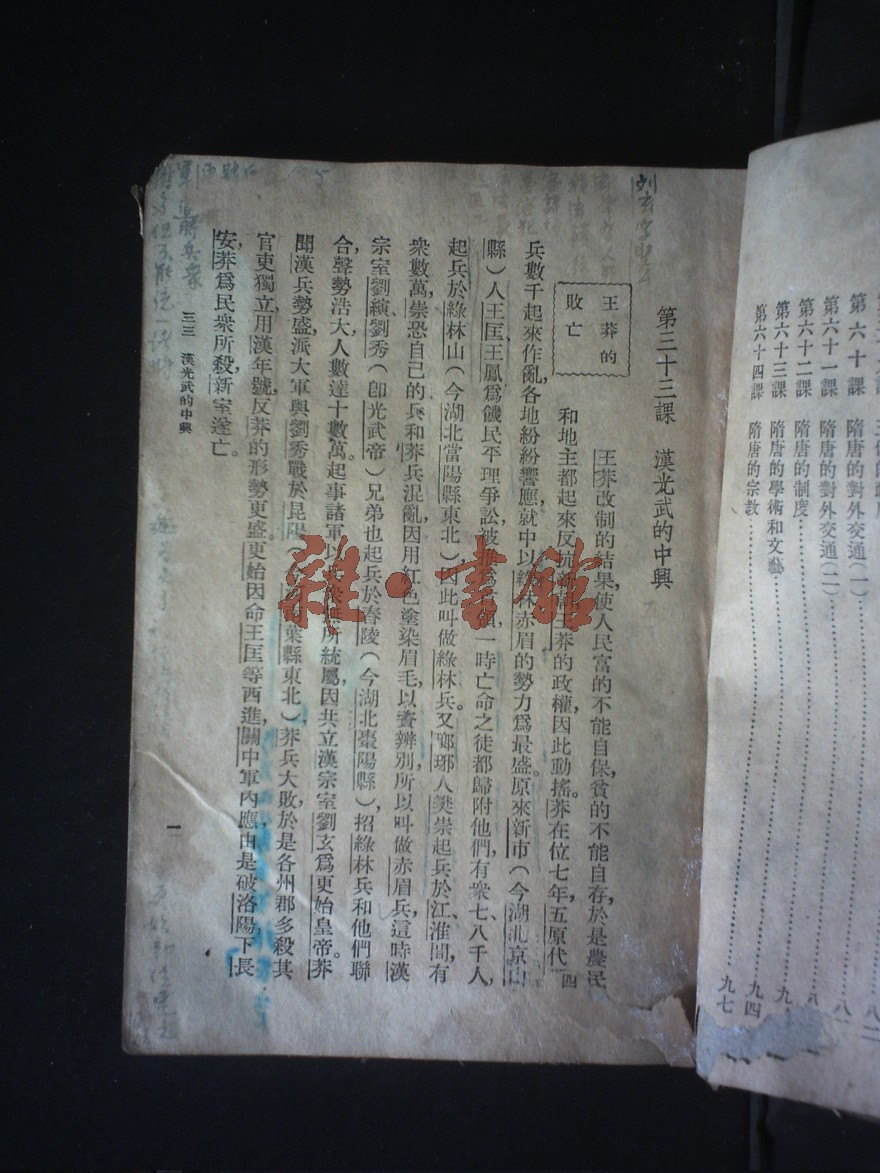 第三十三課　漢光武的中興
王莽的
敗亡
王莽改制的結果，使人民富的不能自保，貧的不能自存，於是農民
和地主都起來反抗，王莽的政權因此動搖。莽在位七年，五原代
兵數千起來作亂，各地紛紛響應，就中以綠林赤眉的勢力爲最盛。原來新市（今湖北京山
縣）人王匡、王鳳爲饑民平理爭訟，被推爲首領，一時亡命之徒都歸附他們，有衆七、八千人，
起兵於綠林山（今湖北當陽縣東北）因此叫做綠林兵。又瑯琊人樊崇起兵於江、淮間，有
衆數萬，崇恐自己的兵和莽兵混亂，因用紅色塗染眉毛，以資辨別，所以叫做赤眉兵，這時漢
宗室劉縯、劉秀（卽光武帝）兄弟也起兵於舂陵（今湖北棗陽縣），招綠林兵和他們聯
合，聲勢浩大，人數達十數萬。起事諸軍以兵所統屬，因共立漢宗室劉玄爲更始皇帝。莽
聞漢兵勢盛，派大軍與劉秀戰於昆陽（葉縣東北），莽兵大敗，於是各州郡多殺其
官吏獨立，用漢年號，反莽的形勢更盛。更始因命王匡等西進，關中軍內應，由是破洛陽，下長
安，莽爲民衆所殺，新室遂亡。
三三　漢光武的中興
一
雜·書館
第六十課　隋唐的對外交通（一）
第六十一課　隋唐的對外交通（二）
第六十二課　隋唐的制度
第六十三課　隋唐的學術和文藝
第六十四課　隋唐的宗教
九四
九七